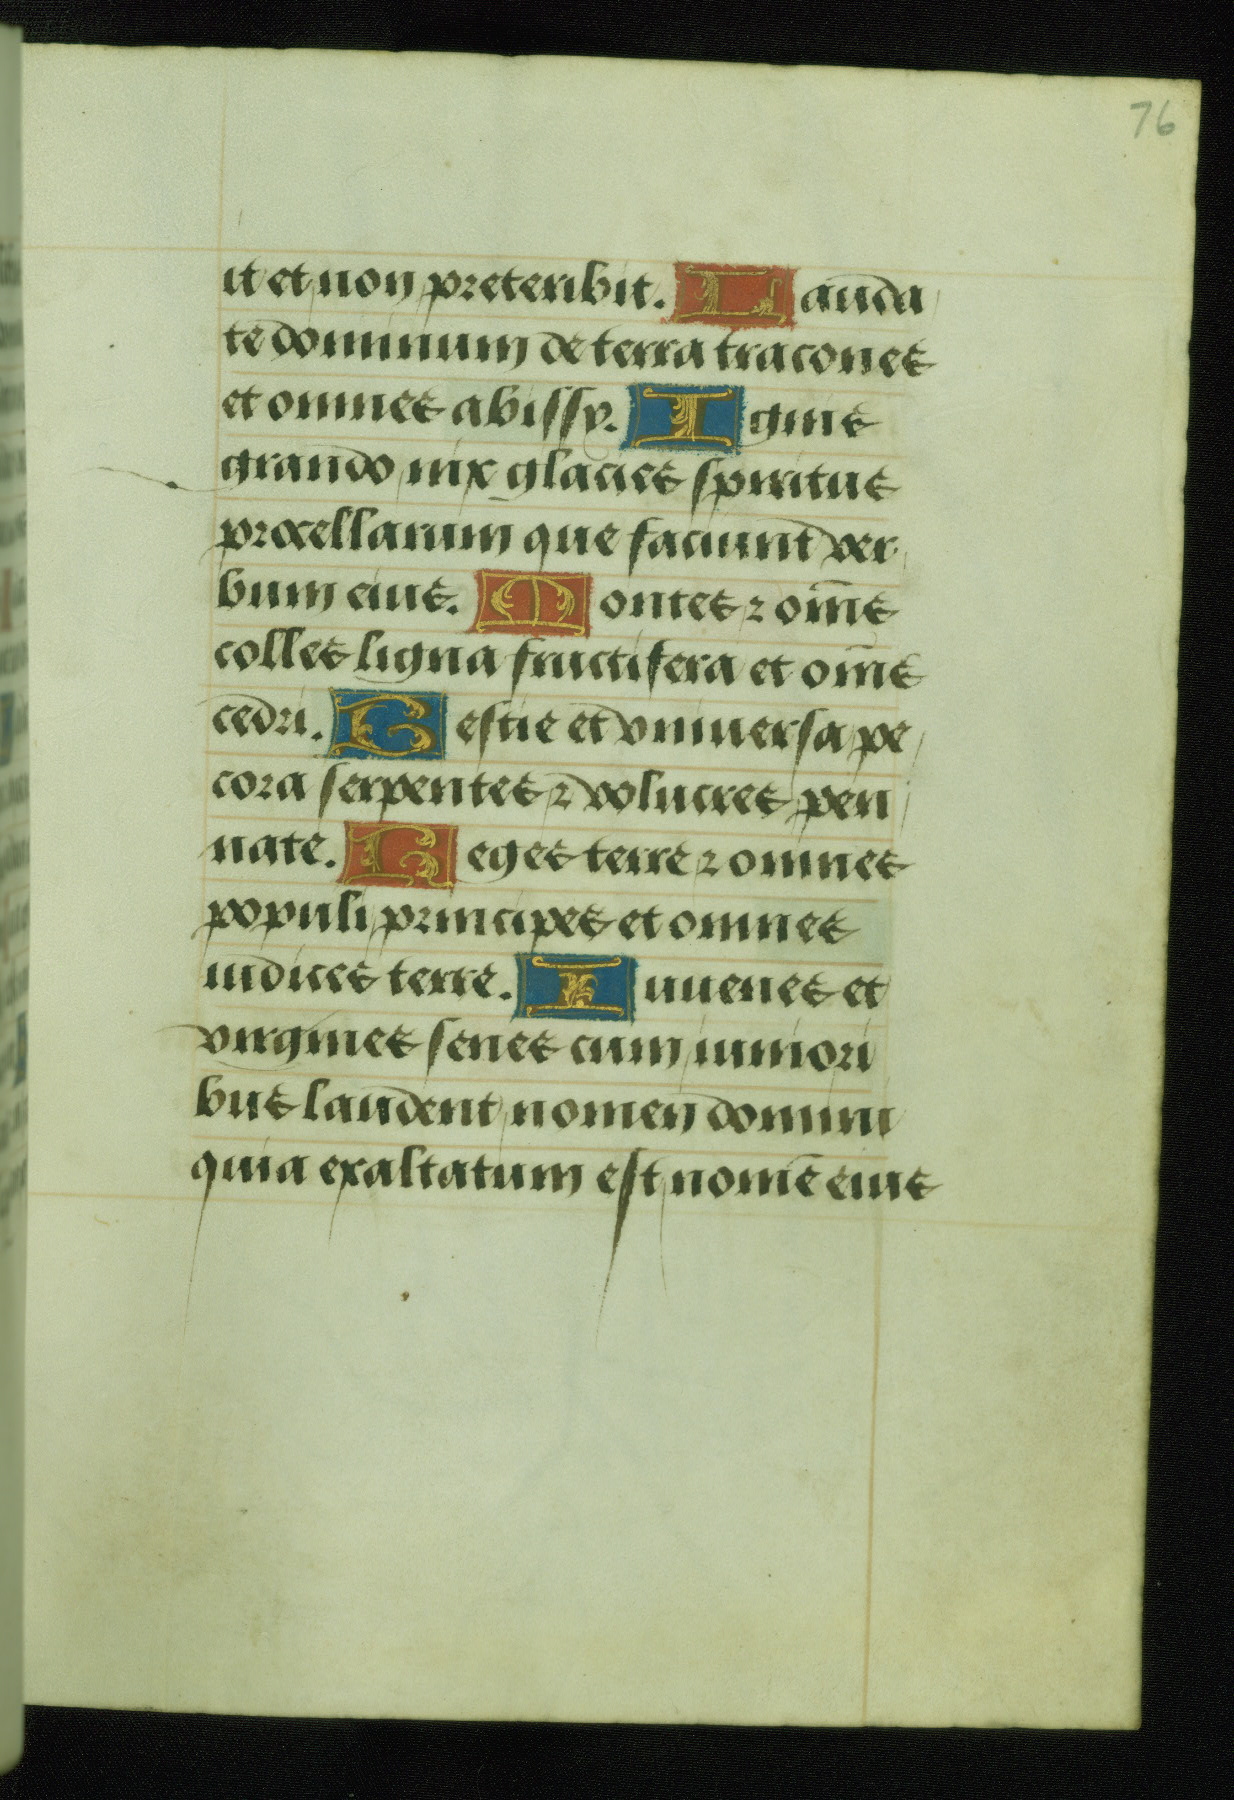 76
it et non preteribit. Lauda
te dominum de terra tracones
et omnes abissy. Ignis
grando nix glacies spiritus
procellarum que faciunt ver
bum eius. Montes ⁊ om̅es
colles ligna fructifera et om̅es
cedri. Bestie et vniuersa pe
cora serpentes ⁊ volucres pen
nate. Reges terre ⁊ omnes
populi principes et omnes
iudices terre. Iuuenes et
virgines senes cum iuniori
bus laudent nomen domini
quia exaltatum est nome̅ eius